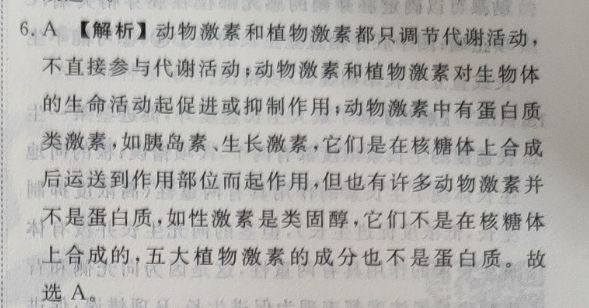 6. A 【解析】动物激素和植物激素都只调节代谢活动，
不直接参与代谢活动；动物激素和植物激素对生物体
的生命活动起促进或抑制作用；动物激素中有蛋白质
类激素，如胰岛素、生长激素，它们是在核糖体上合成
后运送到作用部位而起作用，但也有许多动物激素并
不是蛋白质，如性激素是类固醇，它们不是在核糖体
上合成的，五大植物激素的成分也不是蛋白质。故
选 A。